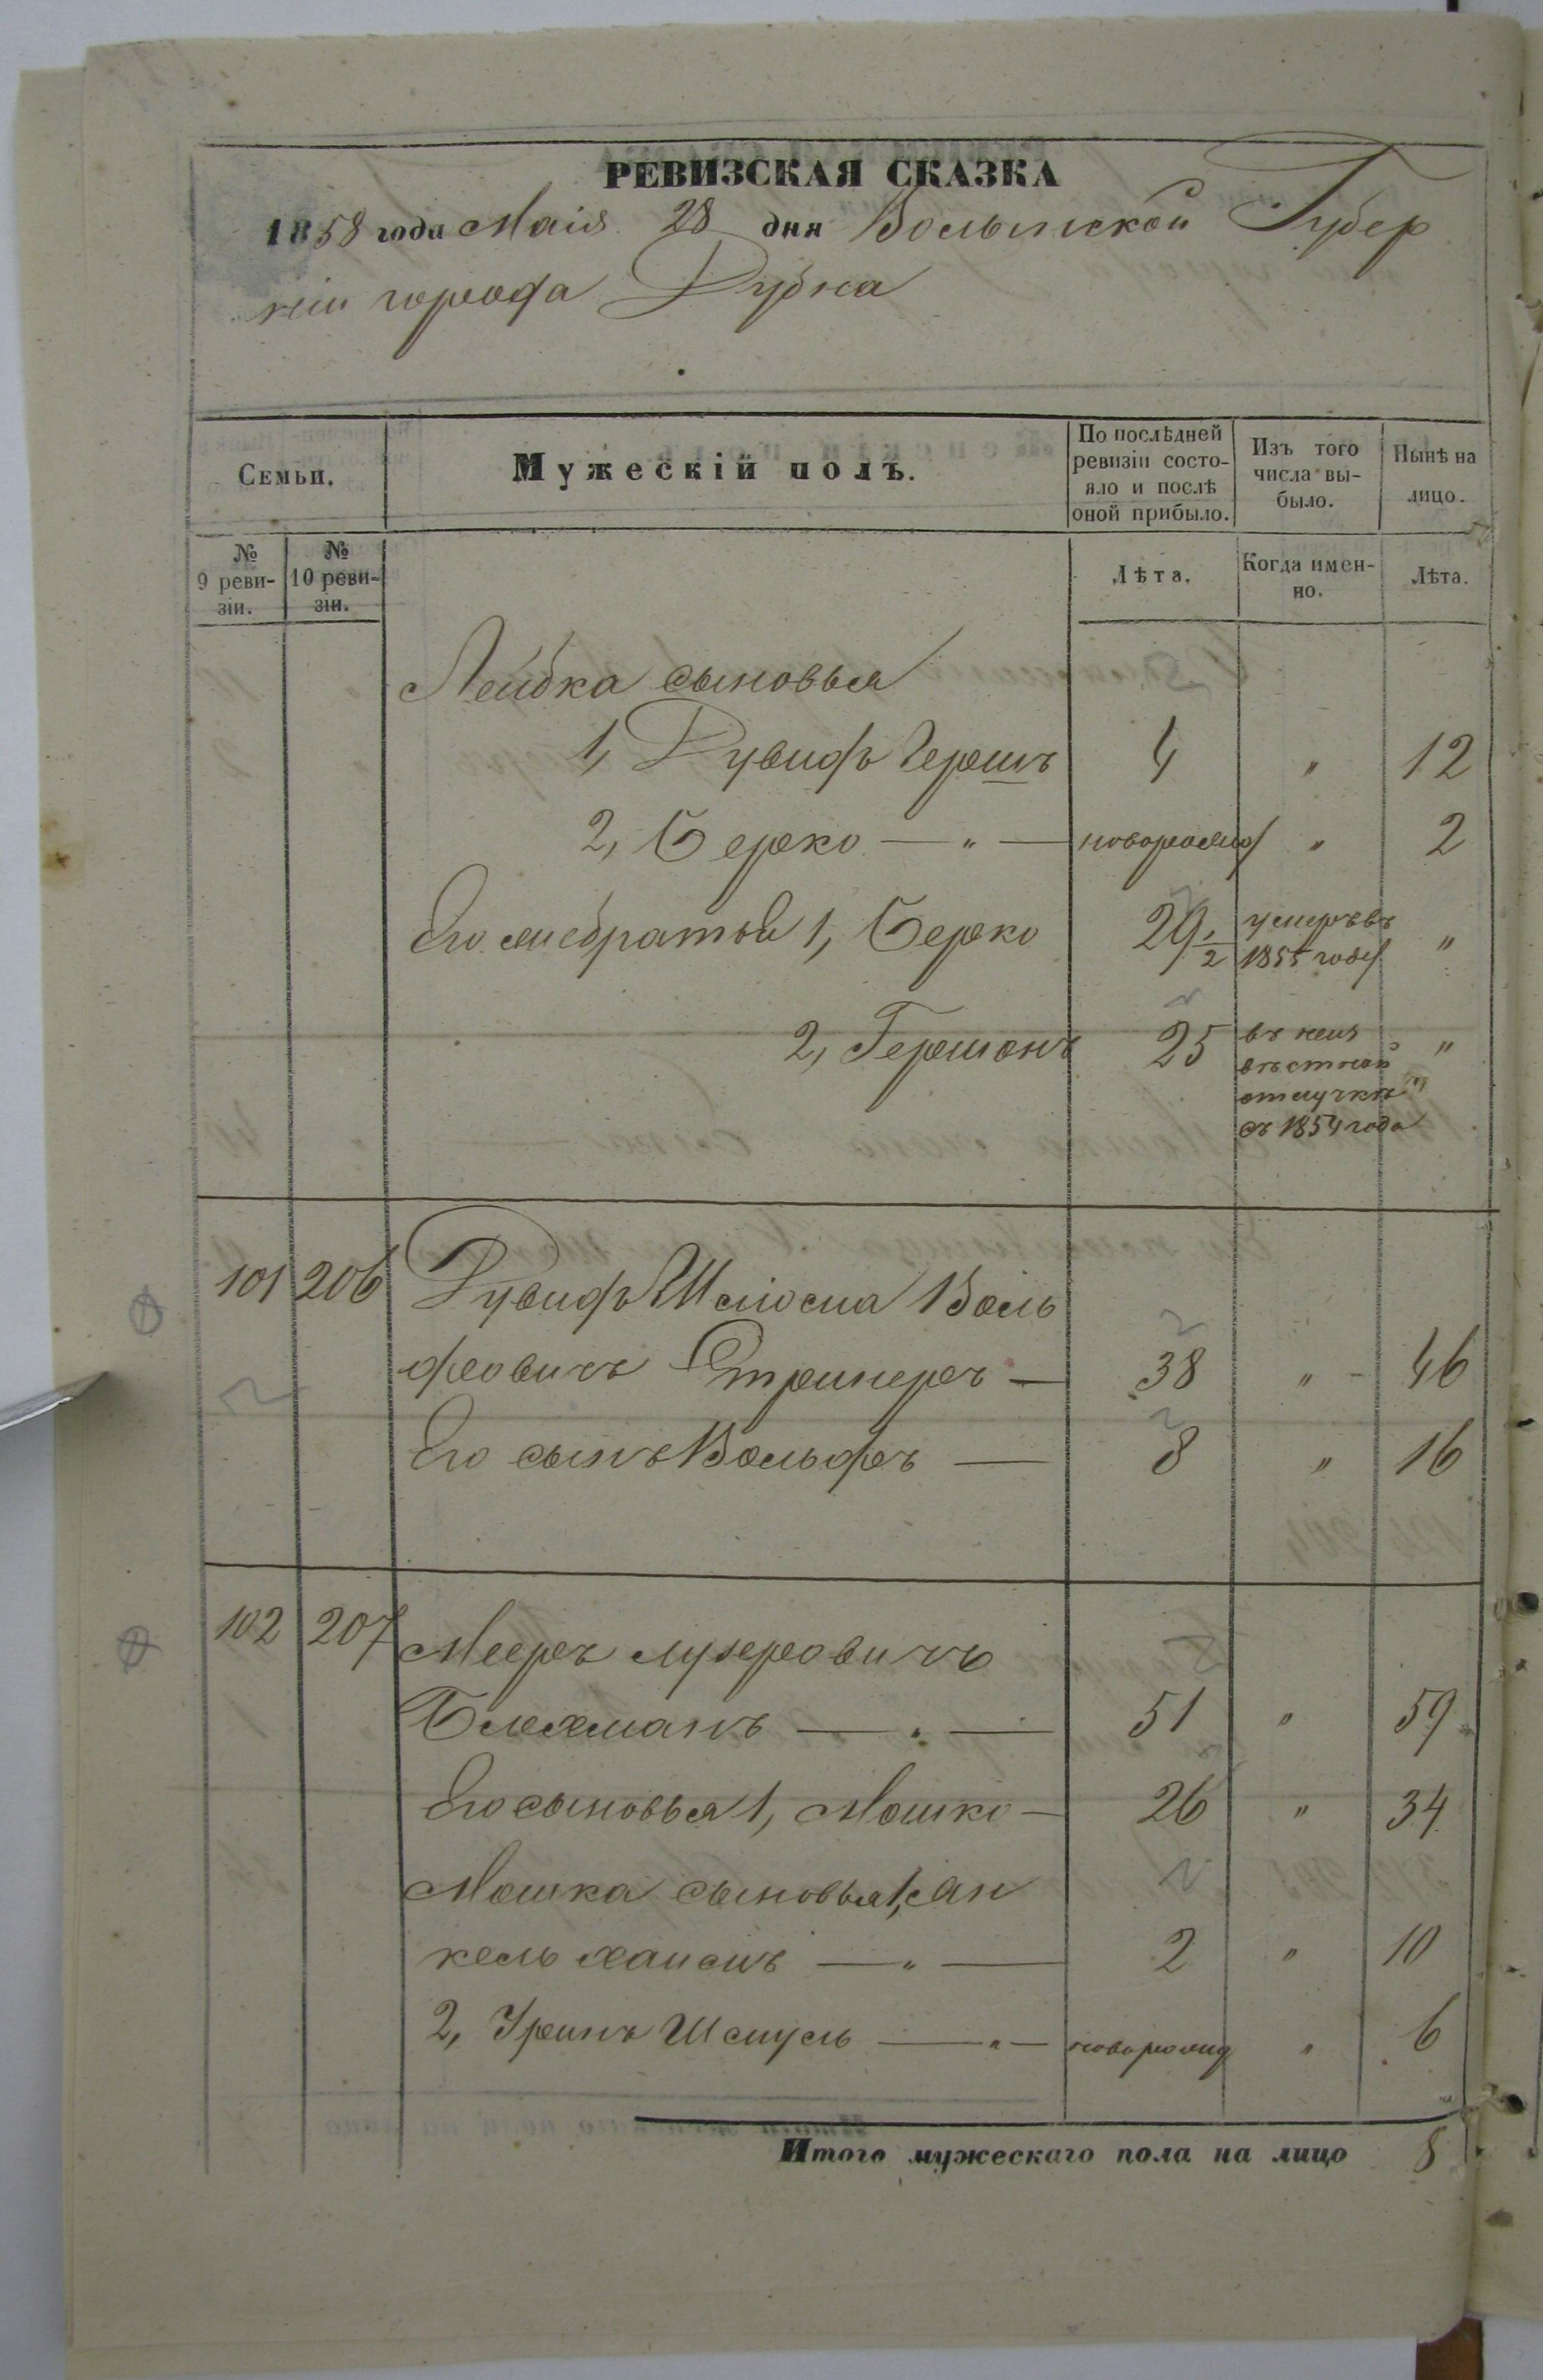 РЕВИЗСКАЯ СКАЗКА
1858 года Маія 28 дня Волынской Губер
ніи города Дубна
Семьи.
Мужескій полъ.
По послѣдней ревизіи состо-
яло и послѣ оной прибыло.
Изъ того числа вы-
было.
Нынѣ на лицо.
№ 9 реви-
зіи.
№ 10 реви-
зіи.
Лѣта.
Когда имен-
но.
Лѣта.
Лейбка сыновья
1, Дувидъ Гершъ 4 " 12
2, Берко — " — новорожд " 2
Его же братья 1, Берко 29 1/2 умеръ въ 1855 году "
2, Гершонъ 25 въ неиз
вѣстной
отлучкѣ "
съ 1854 года
101 206 Дувидъ Шліома Воль
фовичъ Штринеръ — 38 " - 46
Его сынъ Вольфъ — 8 " 16
102 207 Мееръ Лузеровичъ
Блехманъ — " — 51 " 59
Его сыновья 1, Мошко — 26 " 34
Мошка сыновья 1, Ян
кель Хаимъ — " — 2 " 10
2, Уринъ Шмуль — " — новорожд " 6
Итого мужескаго пола на лицо 8